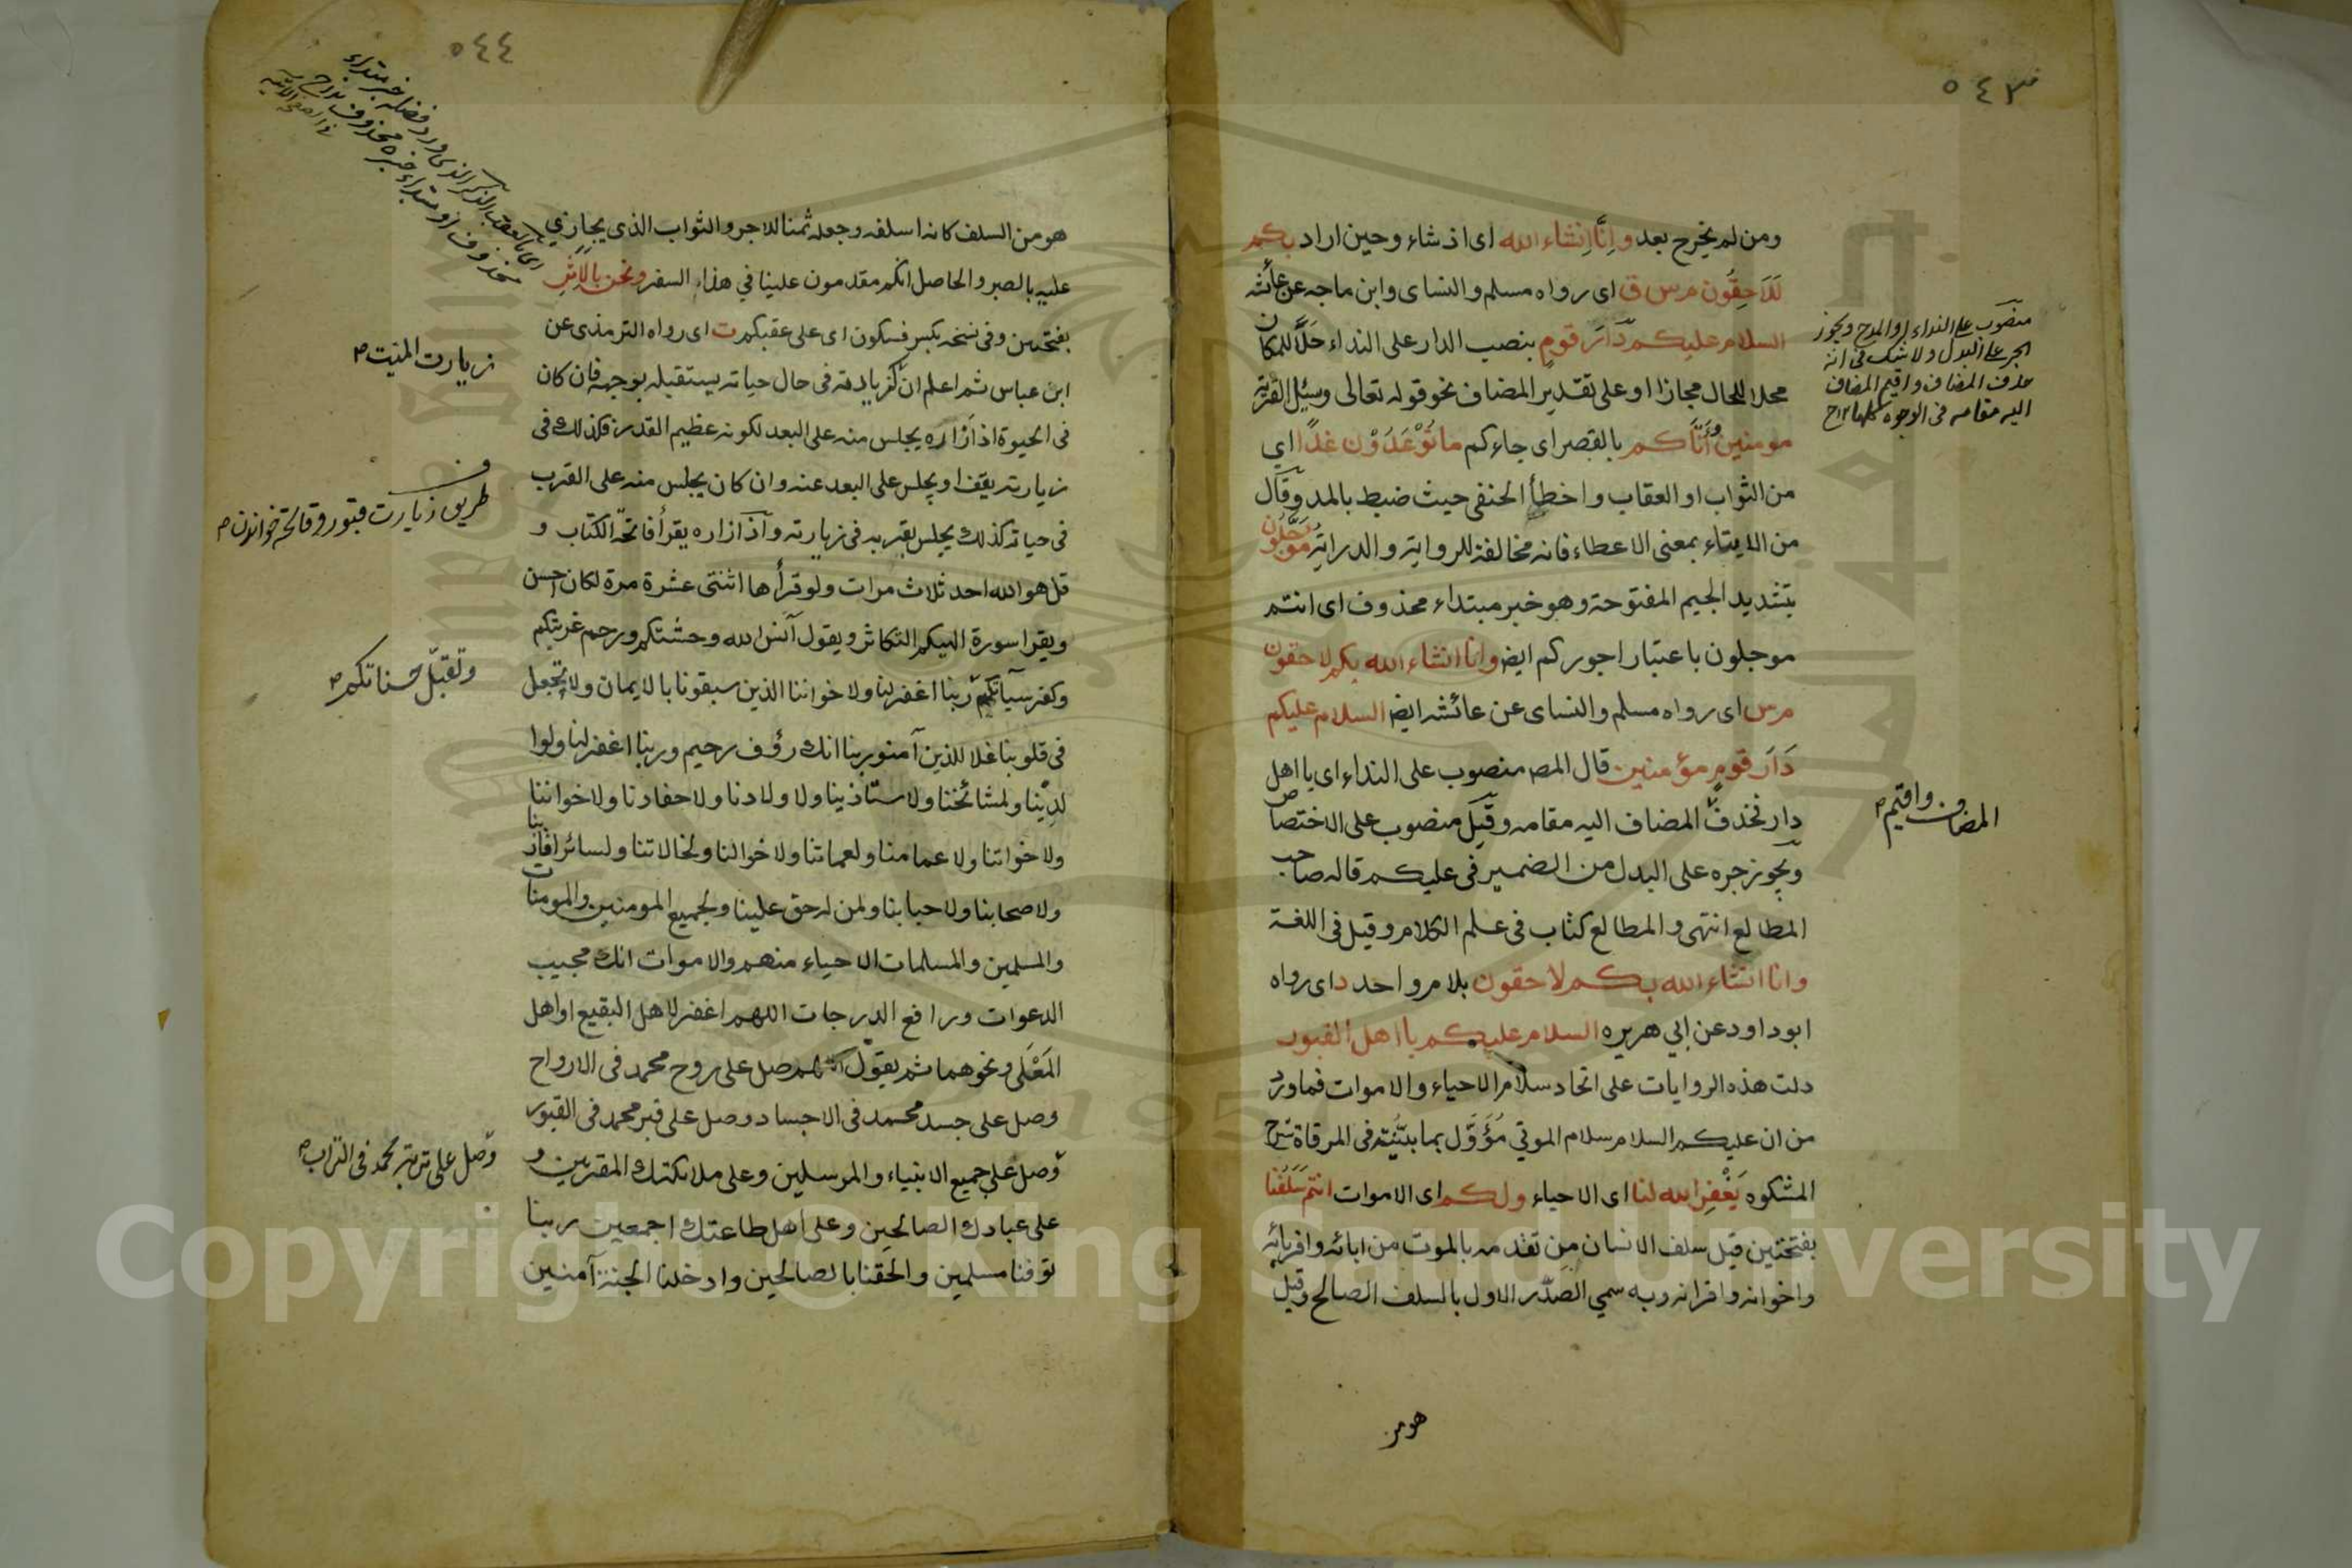 ٥٤٣
ومن لم يخرج بعد وانَّا اِنشاء الله اى اذ شاء وحين اراد بكم
لَلَاحِقُون م س ق اى رواه مسلم والنساى وابن ماجه عن عائشه
السلام عليكم دَارَ قومٍ بنصب الدار على النداء حَلَّا للمكان
محلا للحال مجازا او على تقدير المضاف نحو قوله تعالى وسئل القرية
مومنين وأَتَاكم بالقصر اى جاءكم ما تُوْعَدُوْن غدًا اي
من الثواب او العقاب واخطأ الحنفى حيث ضبط بالمد وقال
من الايتاء بمعنى الاعطاء فانه مخالفة للرواية والدراية مؤجَّلُون
بتشديد الجيم المفتوحة وهو خبر مبتداء محذوف اى انتم
موجلون باعتبار اجوركم ايض وانا انشاء الله بكم لاحقون
م س اى رواه مسلم والنساى عن عائشه ايض السلام عليكم
دَارَ قومٍ مؤمنين قال المص منصوب على النداء اى يا اهل
دار فحذف المضاف اليه مقامه وقيل منصوب على الاختصاص
ويجوز جره على البدل من الضمير فى عليكم قاله صاحب
المطالع انتهى والمطالع كتاب فى علم الكلام وقيل فى اللغة
وانا انشاء الله بكم لاحقون بلام واحد د اى رواه
ابوداود عن ابي هريره السلام عليكم يا اهل القبور
دلت هذه الروايات على اتحاد سلام الاحياء والاموات فما ورد
من ان عليكم السلام سلام الموتي مُؤَوَّل بما بيّنته فى المرقاة شرح
المشكوه يَغْفِر الله لنا اى الاحياء ولكم اى الاموات انتم سَلَفُنا
بفتحتين قيل سلف الانسان من تقدمه بالموت من ابائه واقربائه
واخوانه واقرانه وبه سمي الصدر الاول بالسلف الصالح وقيل
هو من
منصوب على النداء او المدح ويجوز
الجر على البدل ولا شك فى انه
حذف المضاف واقيم المضاف
اليه مقامه فى الوجوه كلها ١٢ ح
المضاف واقيم
٥٤٤
هو من السلف كانه اسلفه وجعله ثمنا للاجر والثواب الذى يجازي
عليه بالصبر والحاصل انكم مقدمون علينا في هذا السفر ونحن بالاَثَرِ
بفتحتين وفى نسخه بكسر فسكون اى على عقبكم ت اى رواه الترمذى عن
ابن عباس ثم اعلم ان كزيارته فى حال حياته يستقبله بوجهه فان كان
فى الحيوة اذا زاره يجلس منه على البعد لكونه عظيم القدر فكذلك فى
زيارته يقف او يجلس على البعد عنه وان كان يجلس منه على القرب
فى حياته كذلك يجلس بقربه فى زيارته واذا زاره يقرأ فاتحة الكتاب و
قل هو الله احد ثلاث مرات ولو قرأها اثنتى عشرة مرة لكان احسن
ويقرا سورة الهيكم التكاثر ويقول آنس الله وحشتكم ورحم غربتكم
وكفر سيآتكم ربنا اغفر لنا ولاخواننا الذين سبقونا بالايمان ولا تجعل
فى قلوبنا غلا للذين آمنو ربنا انك رؤف رحيم وربنا اغفر لنا ولوا
لدِيْنا ولمشائخنا ولاستاذينا ولاولادنا ولاحفادنا ولاخواننا
ولاخواتنا ولاعمامنا ولعماتنا ولاخوالنا ولخالاتنا ولسائر اقاربنا
ولاصحابنا ولاحبابنا ولمن له حق علينا ولجميع المومنين والمومنات
والمسلمين والمسلمات الاحياء منهم والاموات انك مجيب
الدعوات ورافع الدرجات اللهم اغفر لاهل البقيع او اهل
المَعْلَى ونحوهما ثم يقول اللهم صل على روح محمد فى الارواح
وصل على جسد محمد فى الاجساد وصل على قبر محمد فى القبور
وصل على جميع الانبياء والمرسلين وعلى ملائكتك المقربين و
على عبادك الصالحين وعلى اهل طاعتك اجمعين ربنا
توفنا مسلمين والحقنا بالصالحين وادخلنا الجنة آمنين
زيارت الميت
طريق زيارت قبور وفاتحة خواندن
وتقبّل حسناتكم
وصل على تربة محمد فى التراب
Copyright © King Saud University
1957